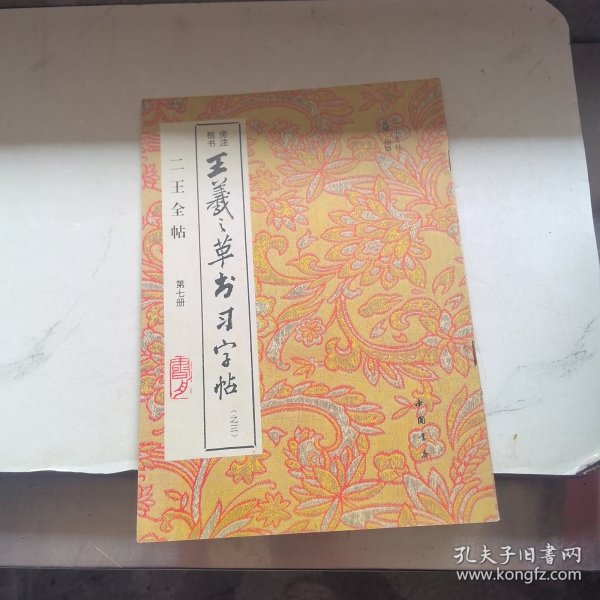 楷书
旁注
王羲之草书习字帖
(之三)
二王全帖
第七册
中国书店
孔夫子旧书网
www.kongfz.com